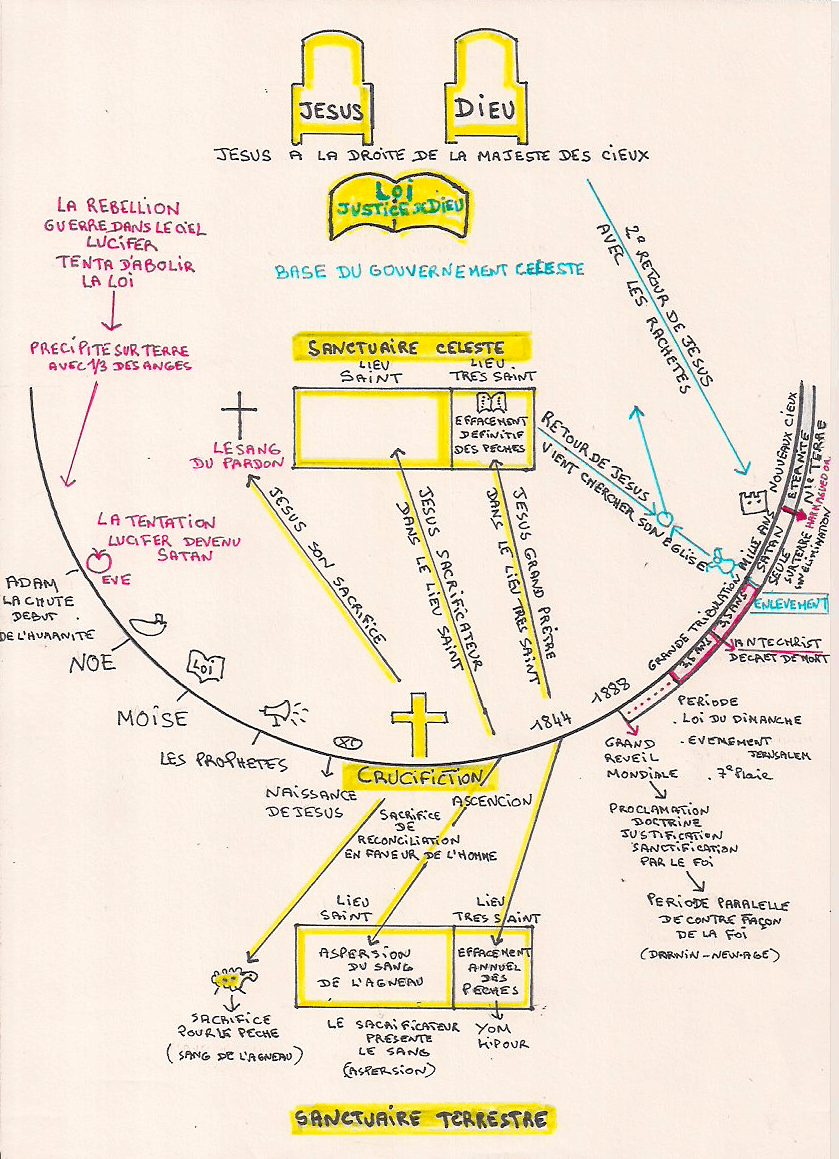 JESUS
DIEU
JESUS A LA DROITE DE LA MAJESTE DES CIEUX
LOI
JUSTICE DE DIEU
BASE DU GOUVERNEMENT CELESTE
LA REBELLION
GUERRE DANS LE CIEL
LUCIFER
TENTA D'ABOLIR
LA LOI
PRECIPITE SUR TERRE
AVEC 1/3 DES ANGES
2e RETOUR DE JESUS
AVEC LES RACHETES
SANCTUAIRE CELESTE
LIEU
SAINT
LIEU
TRES SAINT
EFFACEMENT
DEFINITIF
DES PECHES
LE SANG
DU PARDON
RETOUR DE JESUS
VIENT CHERCHER SON EGLISE
LA TENTATION
LUCIFER DEVENU
SATAN
EVE
ADAM
LA CHUTE
DEBUT
DE L'HUMANITE
NOE
LOI
MOISE
LES PROPHETES
NAISSANCE
DE JESUS
JESUS SON SACRIFICE
JESUS SACRIFICATEUR
DANS LE LIEU SAINT
JESUS GRAND PRÊTRE
DANS LE LIEU TRES SAINT
CRUCIFICTION
1844
1888
GRANDE TRIBULATION
3,5 ANS
3,5 ANS
MILLE ANS
SATAN
SEULE
SUR TERRE
SON ELIMINATION
HARMAGUEDON
NOUVEAUX CIEUX
ETERNITE
Nle TERRE
ENLEVEMENT
ANTECHRIST
DECRET DE MORT
PERIODE
. LOI DU DIMANCHE
. EVENEMENT
JERUSALEM
. 7e Plaie
GRAND
REVEIL
MONDIALE
PROCLAMATION
DOCTRINE
JUSTIFICATION
SANCTIFICATION
PAR LE FOI
PERIODE PARALELLE
DE CONTRE FAÇON
DE LA FOI
(DARWIN-NEW-AGE)
ASCENCION
SACRIFICE
DE
RECONCILIATION
EN FAVEUR DE L'HOMME
LIEU
SAINT
LIEU
TRES SAINT
ASPERSION
DU SANG
DE L'AGNEAU
EFFACEMENT
ANNUEL
DES
PECHES
SACRIFICE
POUR LE PECHE
(SANG DE L'AGNEAU)
LE SACRIFICATEUR
PRESENTE
LE SANG
(ASPERSION)
YOM
KIPOUR
SANCTUAIRE TERRESTRE